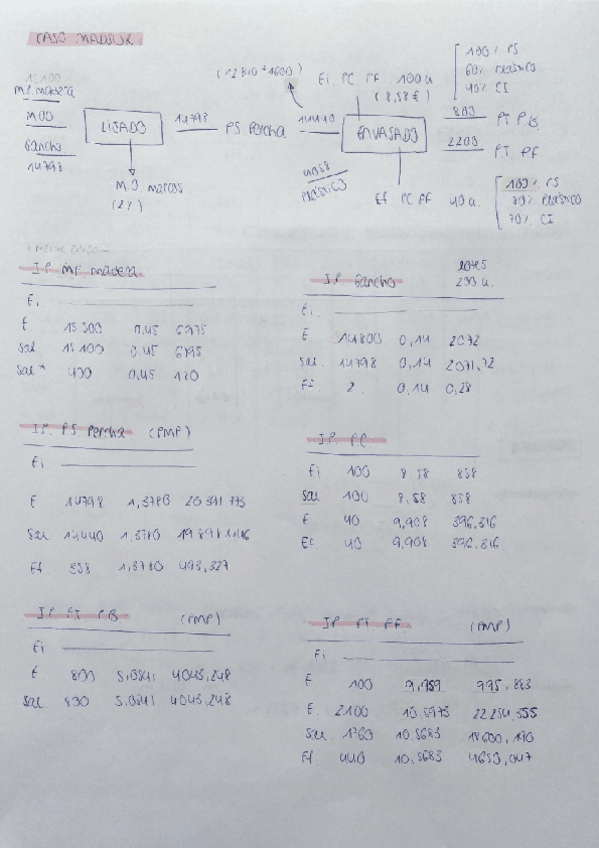 CASO MADSUR
15100
MP. madera
MOD
Gancho
14798
LIJADO
M.O. marcos
(2%)
14798
PS Percha
14440
(12840 + 1600)
Ei PC PF 100 u
(8,58€)
ENVASADO
100% PS
60% PLÁSTICO
40% CI
800
PT PB
2200
PT PF
4058
PLÁSTICO
Ef PC PF 40 u.
100% PS
70% CI
I.P. MP. madera
Ei
E 15.500 0,45 6975
Sal 15 100 0,45 6795
Sal* 400 0,45 180
I.P. Gancho
lotes
200 u.
Ei.
E 14800 0,14 2072
Sal. 14798 0,14 2071,72
Ef 2 0,14 0,28
I.P. PS Percha (PMP)
Ei
E 14798 1,3780 20 391 775
Sal 14440 1,3780 19 898,446
Ef 358 1,3780 493,327
I.P. PC
Ei 100 8,58 858
Sal 100 8,58 858
E 40 9,908 396,316
Ef 40 9,908 396,316
I.P PT PB (PMP)
Ei
E 800 5,0541 4043,248
Sal 800 5,0541 4043,248
I.P PT PF (PMP)
Ei
E 100 9,959 995,883
E. 2100 10,5973 22 254,355
Sal 1760 10,5683 18600,190
Ef 440 10,5683 4650,047